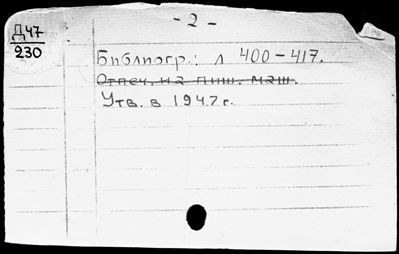 - 2 -
Д47
230
Библиогр.: л 400-417.
Отпеч. на пиш. маш.
Утв. в 1947г.